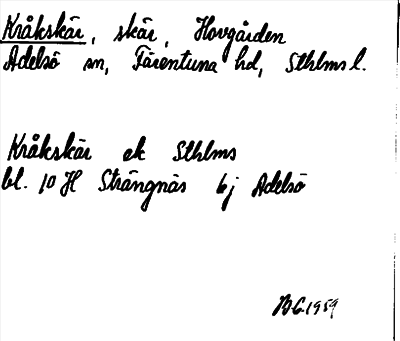 Kråkskär, skär, Hovgården
Adelsö sn, Färentuna hd, Sthlms l.
Kråkskär ek Sthlms
bl. 10 H Strängnäs 6j Adelsö
BG 1959